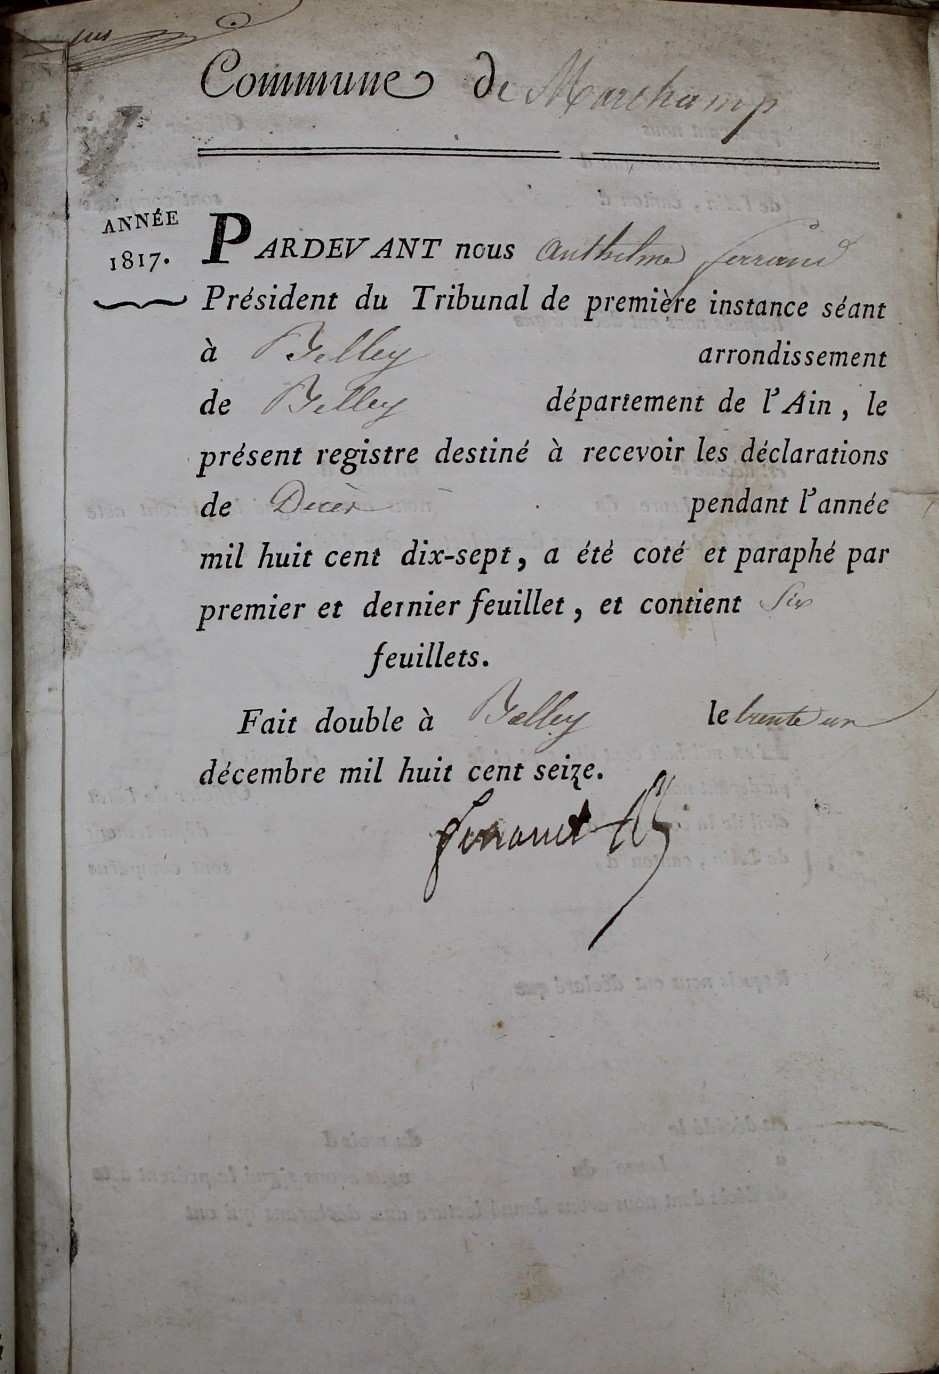 Commune de Marchamp
ANNÉE
1817.
PARDEVANT nous Anthelme ferrand
Président du Tribunal de première instance séant
à Belley arrondissement
de Belley département de l'Ain, le
présent registre destiné à recevoir les déclarations
de Décès pendant l'année
mil huit cent dix-sept, a été coté et paraphé par
premier et dernier feuillet, et contient Six
feuillets.
Fait double à Belley le trente un
décembre mil huit cent seize.